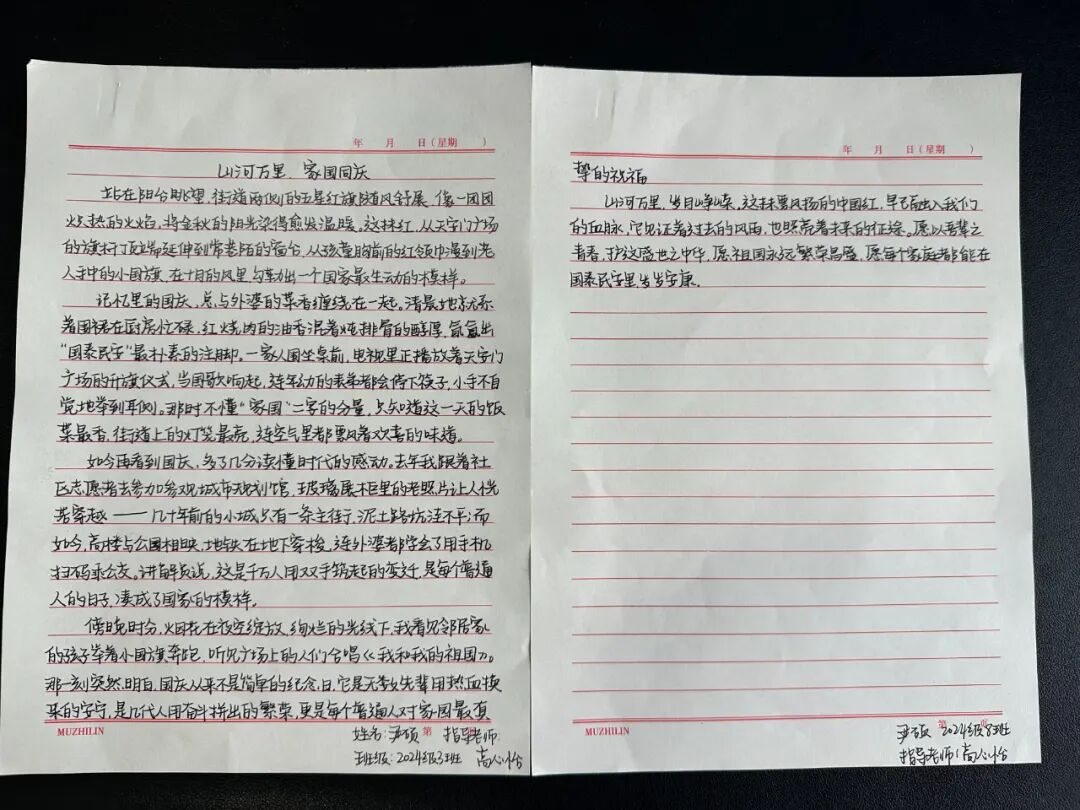 年 月 日（星期 ）
山河万里、家国同庆
站在阳台眺望，街道两侧的五星红旗随风舒展，像一团团
火热的火焰，将金秋的阳光染得愈发温暖。这抹红，从天安门广场
的旗杆顶端延伸到寻常巷陌的窗台，从孩童胸前的红领巾漫到老
人手中的小国旗，在十月的风里勾勒出一个国家最生动的模样。
记忆里的国庆，总与外婆的菜香缠绕在一起。清晨她就系
着围裙在厨房忙碌，红烧肉的油香混着炖排骨的醇厚，氤氲出
“国泰民安”最朴素的注脚。一家人围坐桌前，电视里正播放着天安门
广场的升旗仪式，当国歌响起，连年幼的表弟都会停下筷子，小手不自
觉地举到耳侧。那时不懂“家国”二字的分量，只知道这一天的饭
菜最香，街道上的灯笼最亮，连空气里都飘着欢喜的味道。
如今再看到国庆，多了几分读懂时代的感动。去年我跟着社
区志愿者去参加参观城市规划馆，玻璃展柜里的老照片让人恍
若穿越——几十年前的小城只有一条主街，泥土路坑洼不平；而
如今，高楼与公园相映，地铁在地下穿梭，连外婆都学会了用手机
扫码乘公交。讲解员说，这是千万人用双手筑起的变迁，是每个普通
人的日子，凑成了国家的模样。
傍晚时分，烟花在夜空绽放，绚烂的光线下，我看见邻居家
的孩子举着小国旗奔跑，听见广场上的人们合唱《我和我的祖国》。
那一刻突然明白，国庆从来不是简单的纪念日，它是无数先辈用热血换
来的安宁，是几代人用奋斗拼出的繁荣，更是每个普通人对家国最真
MUZHILIN
姓名：尹硕 第 指导老师：
班级：2024级8班 高心怡
年 月 日（星期 ）
挚的祝福
山河万里，岁月峥嵘。这抹飘扬的中国红，早已融入我们
的血脉，它见证着过去的风雨，也照亮着未来的征途。愿以吾辈之
青春，护这盛世之中华，愿祖国永远繁荣昌盛，愿每个家庭都能在
国泰民安里岁岁安康.
MUZHILIN
第 页
尹硕 2024级8班
指导老师：高心怡